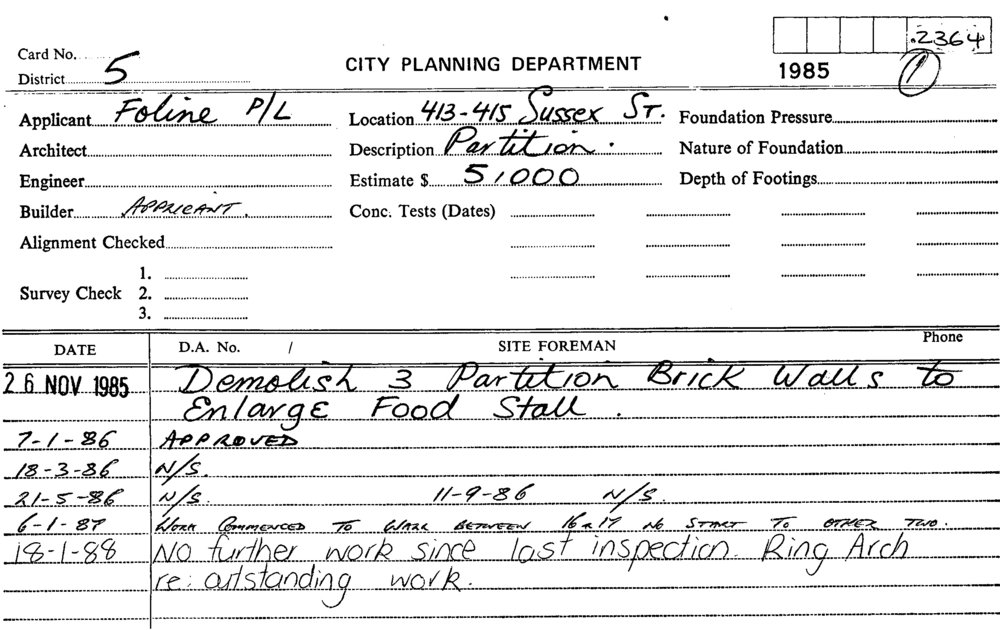 .2364
Card No.
District 5
CITY PLANNING DEPARTMENT
1985 1
Applicant Foline P/L
Location 413-415 Sussex ST.
Foundation Pressure
Architect
Description Partition.
Nature of Foundation
Engineer
Estimate $ 5,000
Depth of Footings
Builder APPLICANT.
Conc. Tests (Dates)
Alignment Checked
1.
Survey Check 2.
3.
DATE D.A. No. / SITE FOREMAN Phone
26 NOV 1985 Demolish 3 Partition Brick Walls to
Enlarge Food Stall.
7-1-86 APPROVED
18-3-86 N/S.
21-5-86 N/S. 11-9-86 N/S.
6-1-87 WORK COMMENCED TO WALL BETWEEN 16 & 17 NO START TO OTHER TWO.
18-1-88 No further work since last inspection. Ring Arch
re: outstanding work.